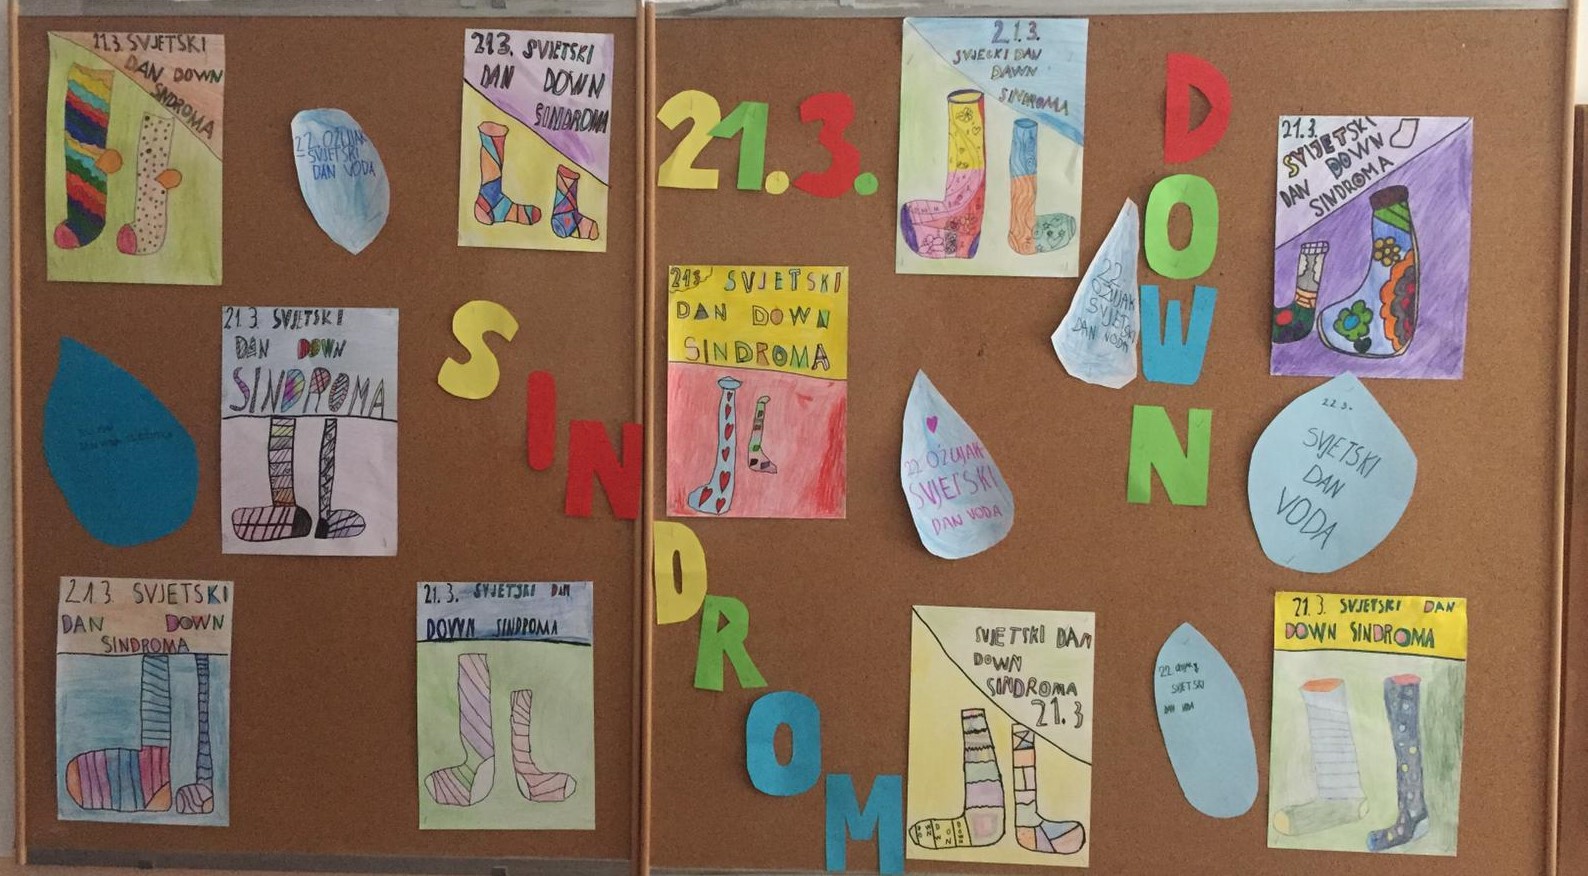 21.3. SVJETSKI
DAN DOWN
SINDROMA
22. OŽUJAK
SVJETSKI
DAN VODA
21.3. SVJETSKI
DAN DOWN
SINDROMA
21.3. SVJETSKI
DAN DOWN
SINDROMA
21.3. SVJETSKI
DAN DOWN
SINDROMA
21.3. SVJETSKI DAN
DOWN SINDROMA
21.3.
DOWN
SINDROM
21.3. SVJETSKI
DAN DOWN
SINDROMA
21.3.
SVJECKI DAN
DAWN
SINDROMA
22.
OŽUJAK
SVJETSKI
DAN VODA
21.3.
SVIJETSKI
DAN DOWN
SINDROMA
22. OŽUJAK
SVJETSKI
DAN VODA
22.3.
SVJETSKI
DAN
VODA
SVJETSKI DAN
DOWN
SINDROMA
21.3
DOWN
22.
SVJETSKI
DAN VODA
21.3. SVJETSKI DAN
DOWN SINDROMA